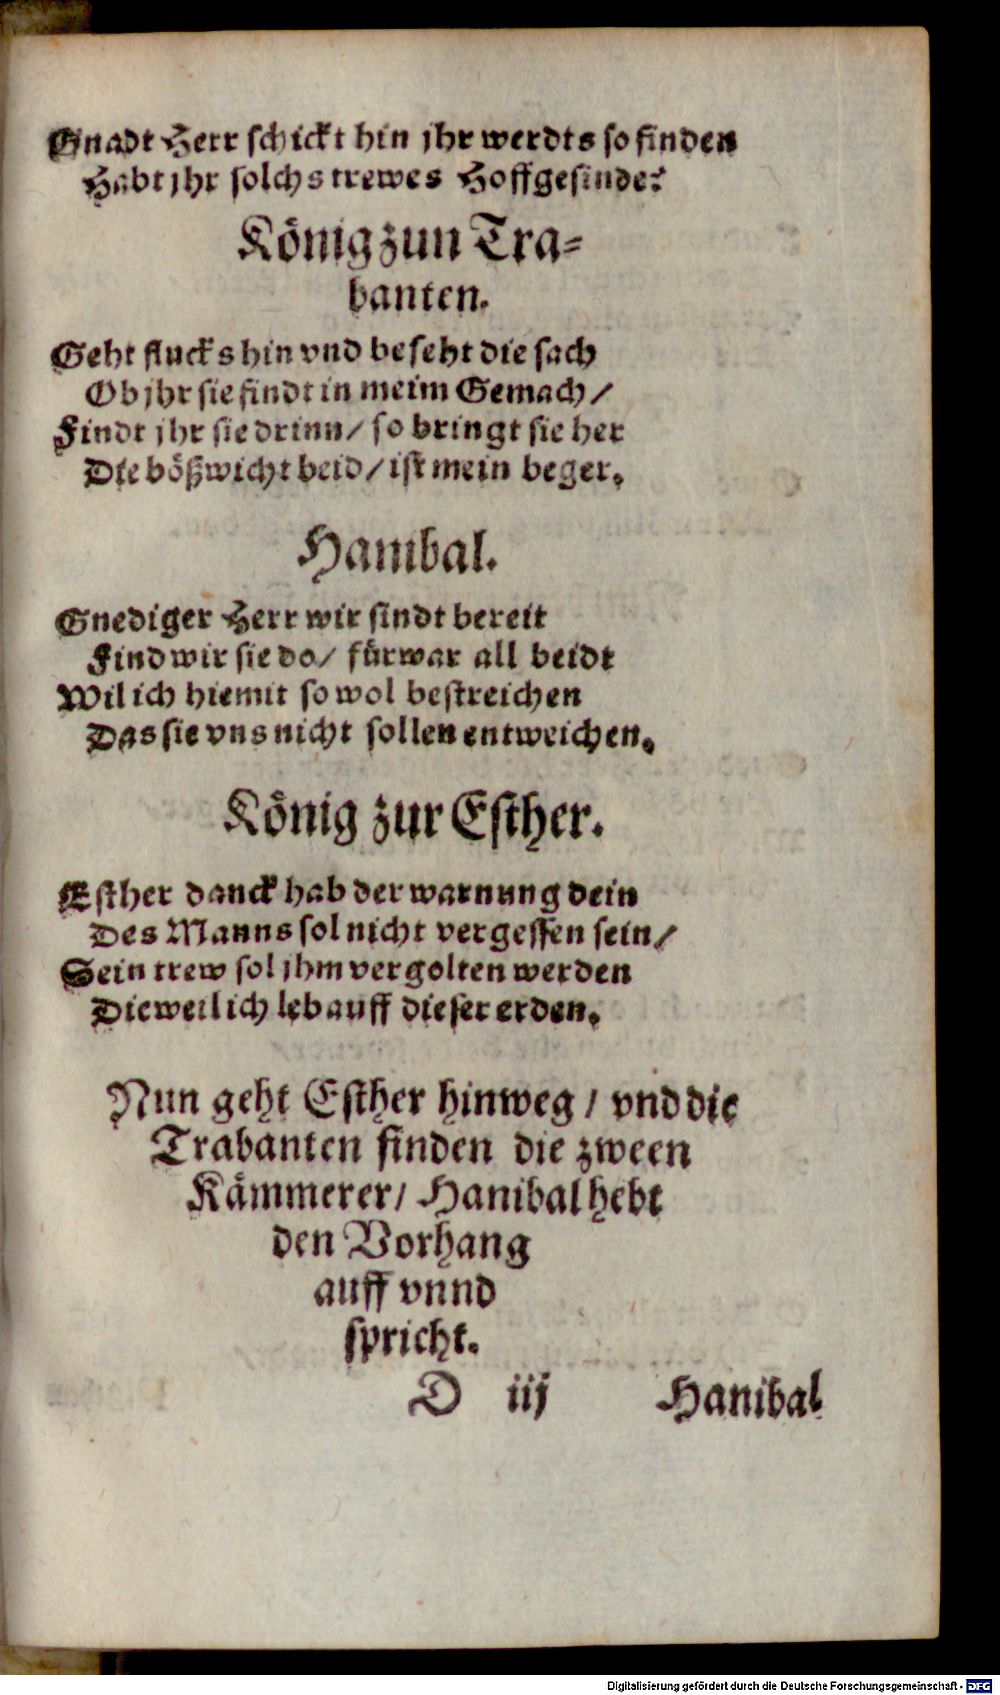 Gnadt Herr schickt hin jhr werdts so finden
Habt jhr solchs trewes Hoffgesinde?
König zun Tra=
banten.
Geht flucks hin vnd beseht die sach
Ob jhr sie findt in meim Gemach /
Findt jhr sie drinn / so bringt sie her
Die bößwicht beid / ist mein beger.
Hanibal.
Gnediger Herr wir sindt bereit
Find wir sie do / fürwar all beidt
Wil ich hiemit so wol bestreichen
Das sie vns nicht sollen entweichen.
König zur Esther.
Esther danck hab der warnung dein
Des Manns sol nicht vergessen sein /
Sein trew sol jhm vergolten werden
Dieweil ich leb auff dieser erden.
Nun geht Esther hinweg / vnd die
Trabanten finden die zween
Kämmerer / Hanibal hebt
den Vorhang
auff vnnd
spricht.
D iij Hanibal
Digitalisierung gefördert durch die Deutsche Forschungsgemeinschaft - DFG